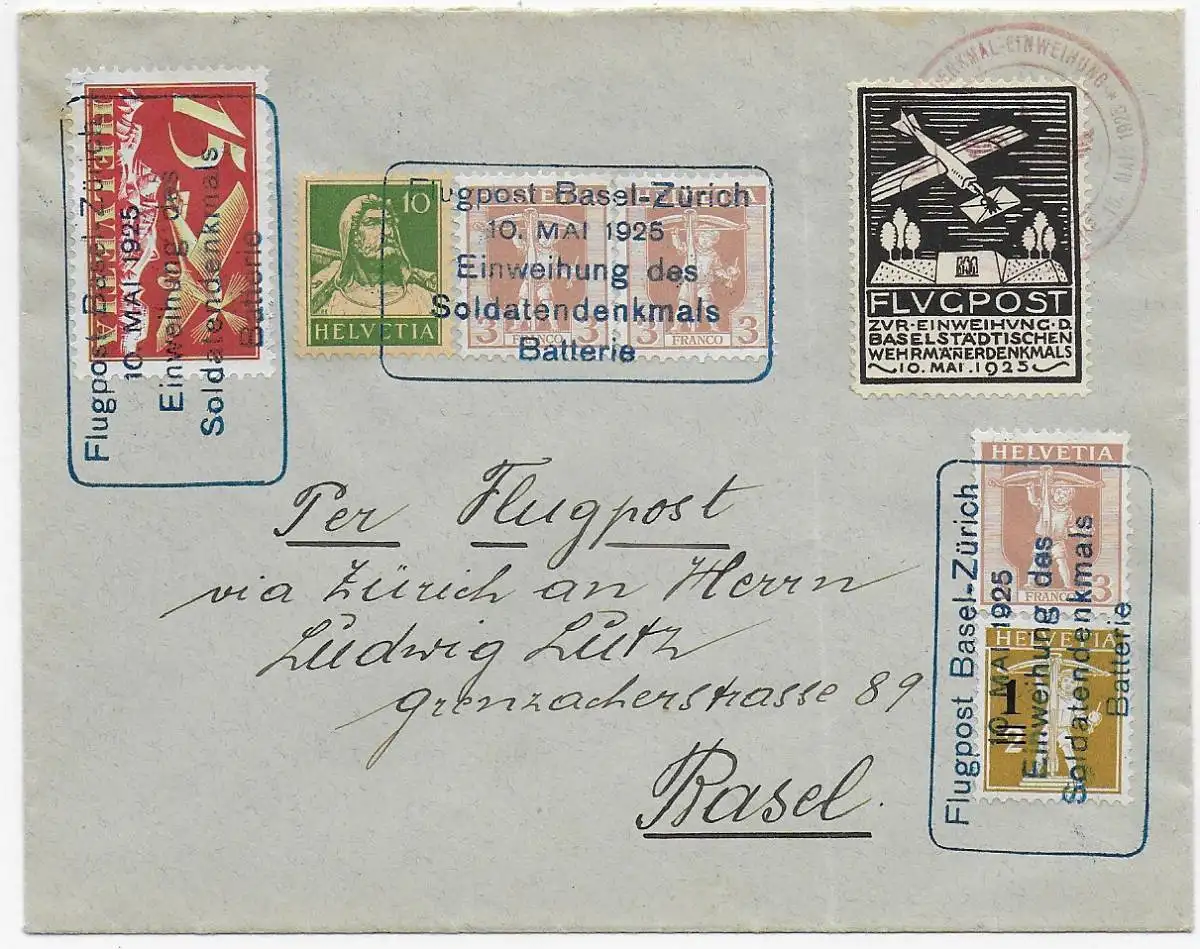 15
HELVETIA
Flugpost Basel-Zürich
10. MAI 1925
Einweihung des
Soldatendenkmals
Batterie
10
HELVETIA
3 3
FRANCO
3
FRANCO
Flugpost Basel-Zürich
10. MAI 1925
Einweihung des
Soldatendenkmals
Batterie
DENKMAL-EINWEIHUNG *
FLVGPOST
ZVR·EINWEIHVNG·D.
BASELSTÄDTISCHEN
WEHRMÄÑERDENKMALS
10. MAI. 1925
Per Flugpost
via Zürich an Herrn
Ludwig Lutz
Grenzacherstrasse 89
Basel.
HELVETIA
3
FRANCO
HELVETIA
1
Flugpost Basel-Zürich
10. MAI 1925
Einweihung des
Soldatendenkmals
Batterie